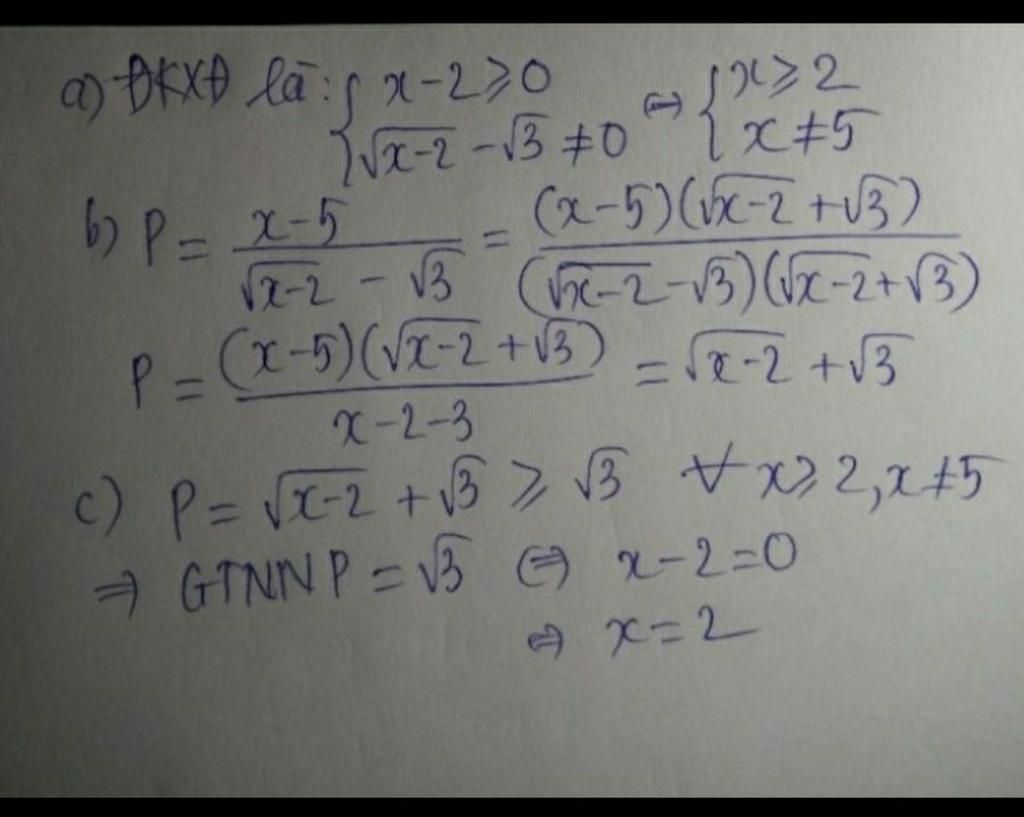 a) ĐKXĐ là: { x-2 ⩾ 0 ⇔ { x ⩾ 2
√x-2 - √3 ≠ 0 x ≠ 5
b) P = x-5 / √x-2 - √3 = (x-5)(√x-2 + √3) / (√x-2 - √3)(√x-2 + √3)
P = (x-5)(√x-2 + √3) / x-2-3 = √x-2 + √3
c) P = √x-2 + √3 ⩾ √3 ∀ x ⩾ 2, x ≠ 5
⇒ GTNN P = √3 ⇔ x-2 = 0
⇔ x = 2